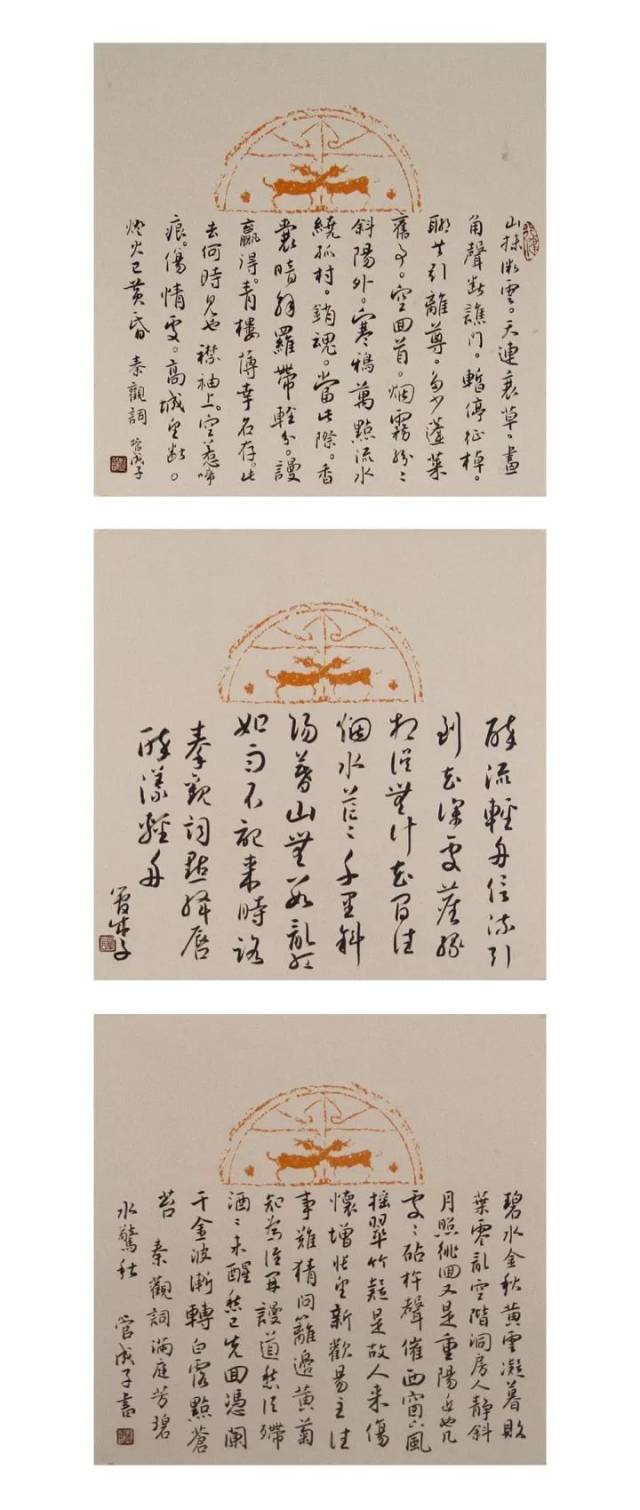 山抹微雲。天連衰草。畫
角聲斷譙門。暫停征棹。
聊共引離尊。多少蓬萊
舊事。空回首。烟霧紛〻
斜陽外。寒鴉萬點流水
繞孤村。銷魂。當此際。香
囊暗解羅帶輕分。謾
贏得。青樓薄幸名存。此
去何時見也襟袖上。空惹啼
痕。傷情處。高城望斷。
燈火已黃昏 秦觀詞 管成子
醉流輕舟信流引
到花深處塵緣
相誤無計花間住
烟水茫〻千里斜
陽暮山無數亂紅
如雨不記來時路
秦觀詞點絳唇
醉漾輕舟
管成子
碧水金秋黃雲凝暮敗
葉零亂空階洞房人靜斜
月照徘徊又是重陽近也几
處〻砧杵聲催西窗下風
搖翠竹疑是故人來傷
懷增悵望新歡易主往
事難猜問籬邊黃菊
知為誰開謾道愁須殢
酒〻未醒愁已先回憑闌
干金波漸轉白露點蒼
苔 秦觀詞滿庭芳碧
水驚秋 管成子書